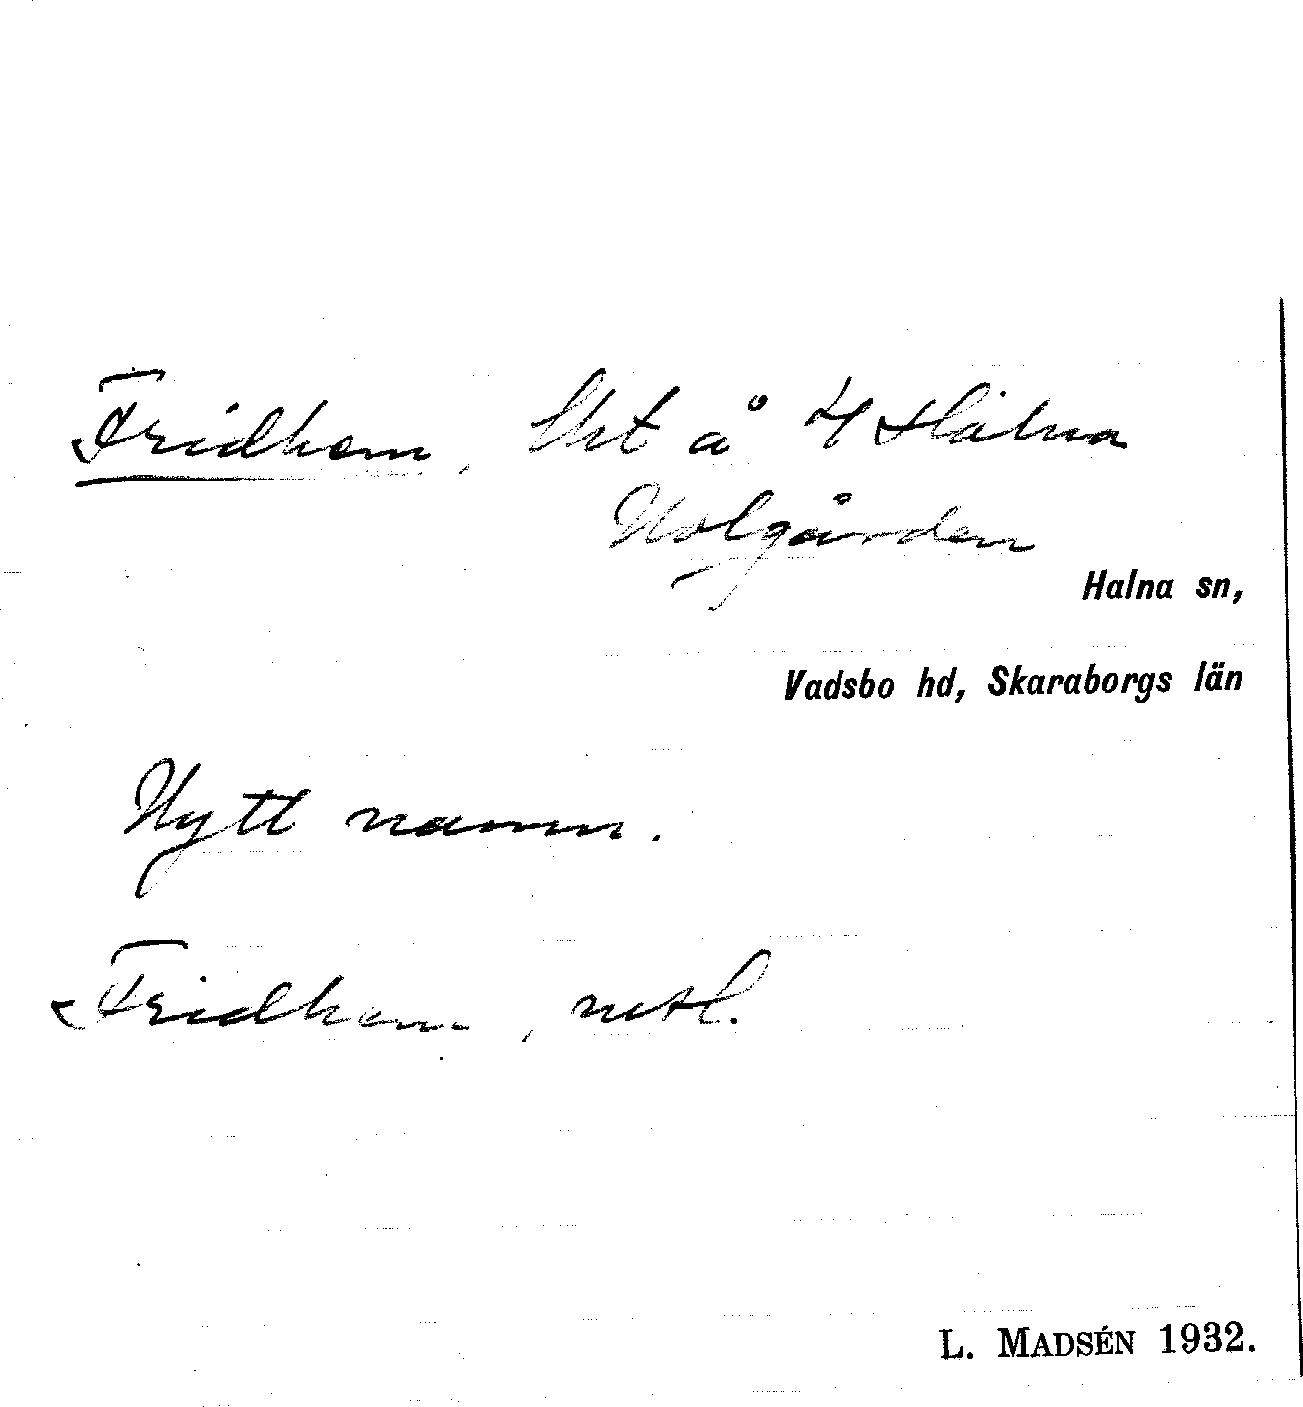 Fridhem, Lht å 4 Halna
Holgården
Halna sn,
Vadsbo hd, Skaraborgs län
Nytt namn.
Fridhem, mtl.
L. MADSÉN 1932.